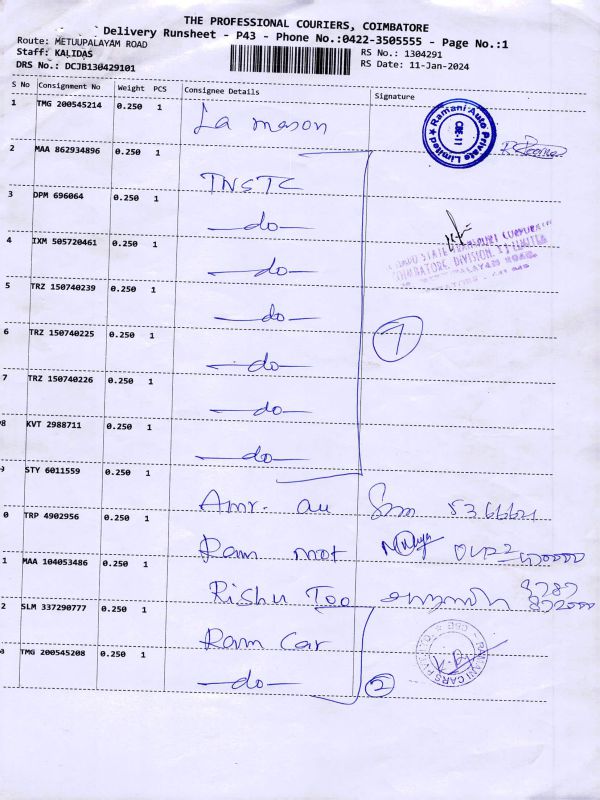 THE PROFESSIONAL COURIERS, COIMBATORE
Delivery Runsheet - P43 - Phone No.:0422-3505555 - Page No.:1
Route: METUUPALAYAM ROAD
RS No.: 1304291
Staff: KALIDAS
RS Date: 11-Jan-2024
DRS No.: DCJB130429101
S No Consignment No Weight PCS Consignee Details Signature
1 TMG 200545214 0.250 1 La mason
Ramani Auto Private Limited
2 MAA 862934896 0.250 1 TNSTC
3 DPM 696064 0.250 1 —do—
4 IXM 505720461 0.250 1 —do—
COIMBATORE DIVISION
5 TRZ 150740239 0.250 1 —do—
6 TRZ 150740225 0.250 1 —do— 7
7 TRZ 150740226 0.250 1 —do—
8 KVT 2988711 0.250 1 —do—
STY 6011559 0.250 1 Amr. au
0 TRP 4902956 0.250 1 Ram mot
1 MAA 104053486 0.250 1 Rishu Too
2 SLM 337290777 0.250 1 Ram Car
RAMANI CARS PVT. LTD.
TMG 200545208 0.250 1 —do— 2